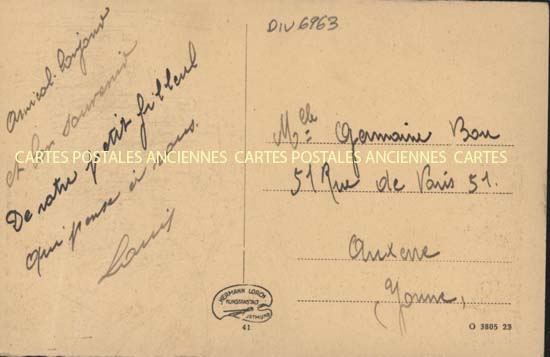 DIV6963
Amical bonjour
et bon souvenir
De votre petit filleul
qui pense à vous.
Louis
Melle Germaine Bon
51 Rue de Paris 51.
Auxerre
(Yonne)
CARTES POSTALES ANCIENNES CARTES POSTALES ANCIENNES CARTES
HERMANN LORCH
KUNSTANSTALT
DORTMUND
41
O 3805 23